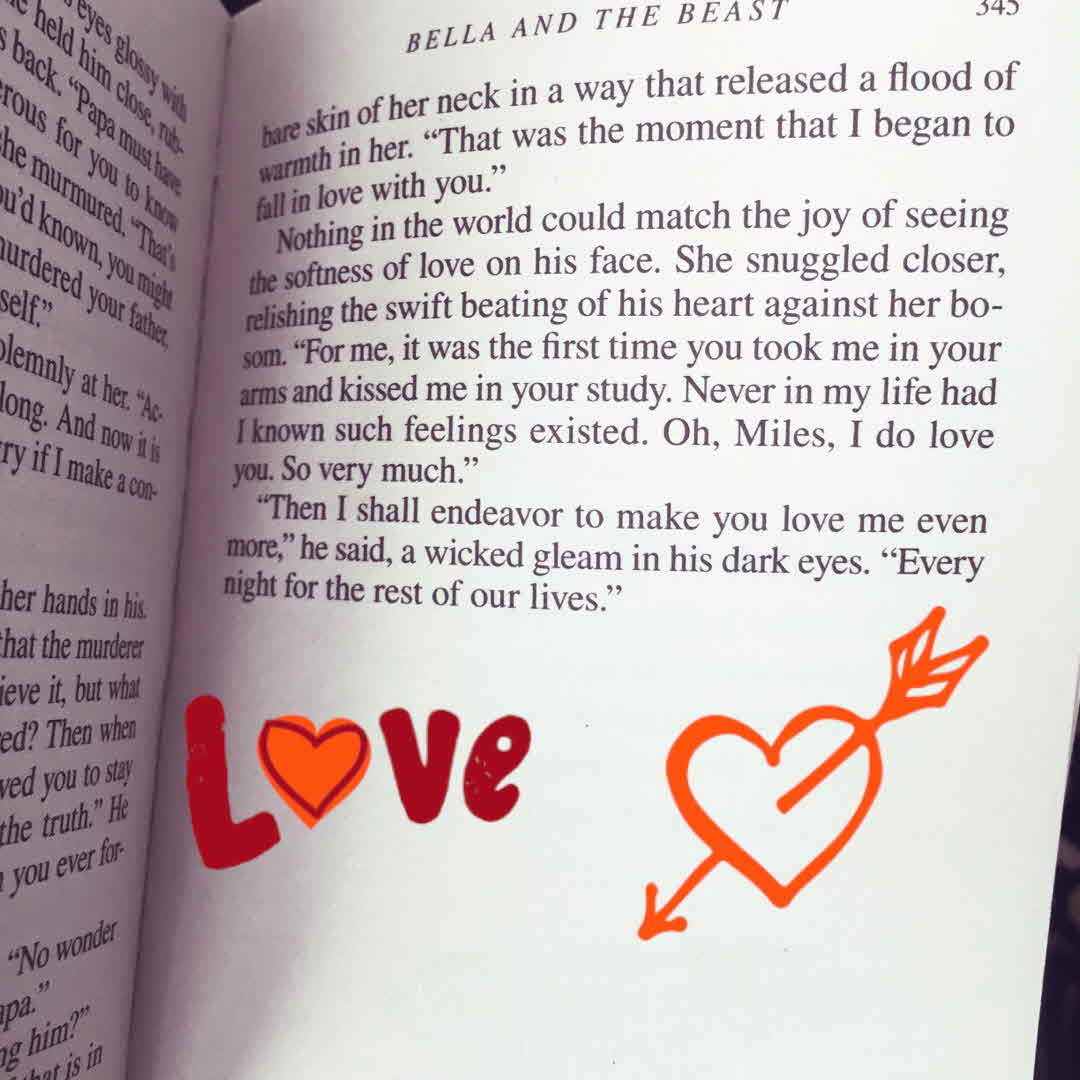 eyes glossy with
held him close, rub-
back. “Papa must have
rous for you to know
he murmured. “That’s
u’d known, you might
murdered your father,
self.”
olemnly at her. “Ac-
long. And now it is
ry if I make a con-
her hands in his.
that the murderer
ieve it, but what
ed? Then when
ved you to stay
the truth.” He
you ever for-
“No wonder
apa.”
ng him?”
that is in
BELLA AND THE BEAST 345
bare skin of her neck in a way that released a flood of
warmth in her. “That was the moment that I began to
fall in love with you.”
Nothing in the world could match the joy of seeing
the softness of love on his face. She snuggled closer,
relishing the swift beating of his heart against her bo-
som. “For me, it was the first time you took me in your
arms and kissed me in your study. Never in my life had
I known such feelings existed. Oh, Miles, I do love
you. So very much.”
“Then I shall endeavor to make you love me even
more,” he said, a wicked gleam in his dark eyes. “Every
night for the rest of our lives.”
Love